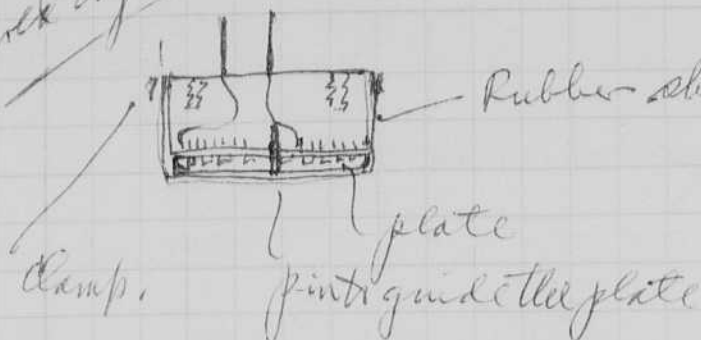 Rubber
plate
Clamp.
pin to guide the plate